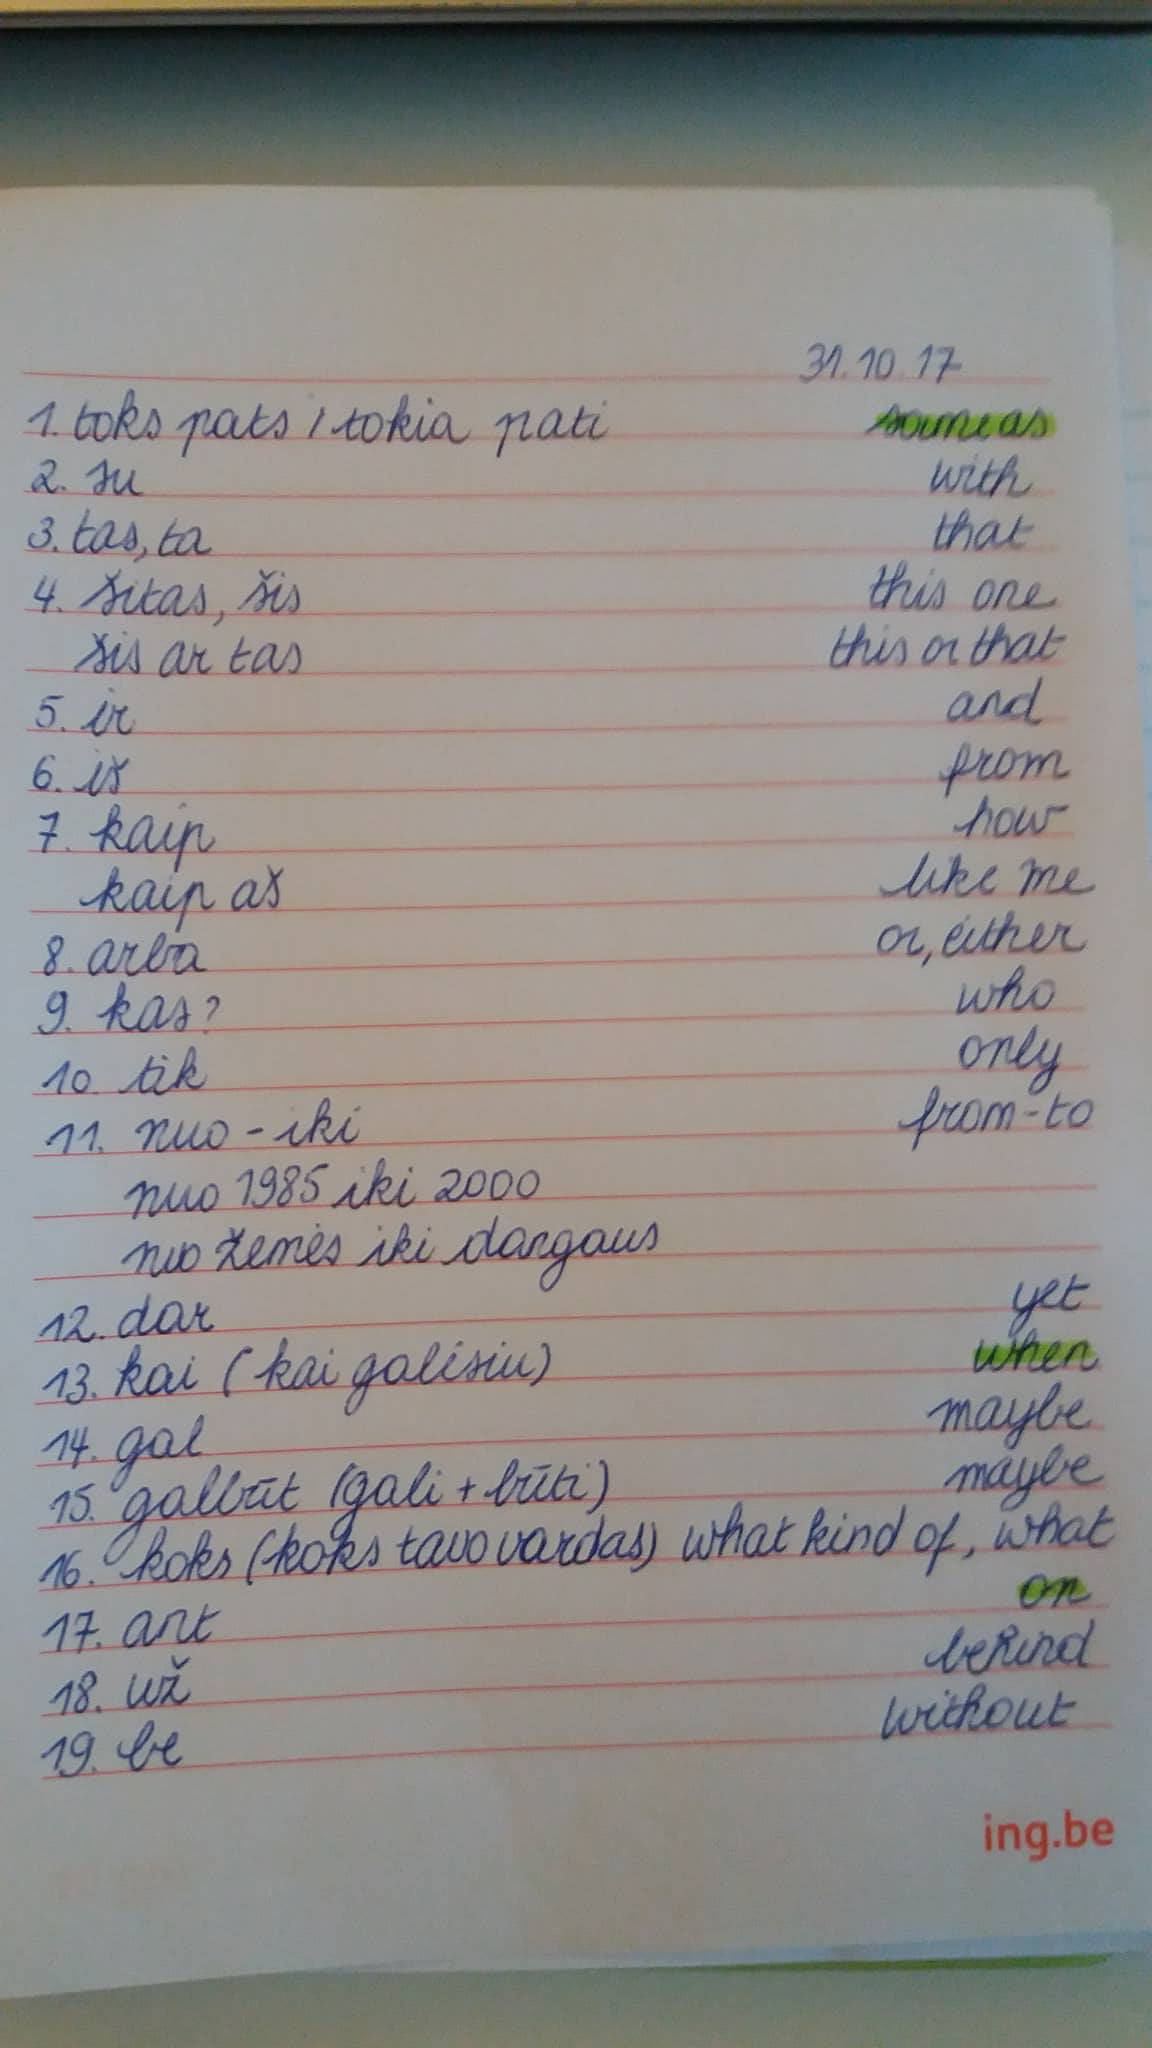 31.10.17
1. toks pats / tokia pati same as
2. su with
3. tas, ta that
4. šitas, šis this one
šis ar tas this or that
5. ir and
6. iš from
7. kaip how
kaip aš like me
8. arba or, either
9. kas? who
10. tik only
11. nuo - iki from - to
nuo 1985 iki 2000
nuo žemės iki dangaus
12. dar yet
13. kai (kai galėsiu) when
14. gal maybe
15. galbūt (gali + būti) maybe
16. koks (koks tavo vardas) what kind of, what
17. ant on
18. už behind
19. be without
ing.be